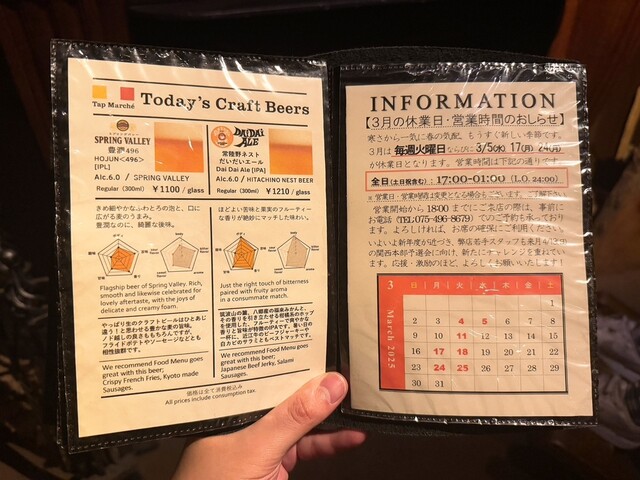 Tap Marché Today's Craft Beers
SPRING VALLEY
豊潤 496
HOJUN<496>
[IPL]
Alc.6.0 / SPRING VALLEY
Regular (300ml) ¥1100 / glass
きめ細やかなふわとろの泡と、口に
広がる麦のうまみ。
豊潤なのに、綺麗な後味。
Flagship beer of Spring Valley. Rich,
smooth and likewise celebrated for
lovely aftertaste, with the joys of
delicate and creamy foam.
やっぱり生のクラフトビールはひとあじ
違う！と思わせる豊かな麦の旨味。
ノド越しの良さももちろんですが、
フライドポテトやソーセージなどとも
相性抜群です。
We recommend Food Menu goes
great with this beer;
Crispy French Fries, Kyoto made
Sausages.
DAIDAI
ALE
常陸野ネスト
だいだいエール
Dai Dai Ale [IPA]
Alc.6.0 / HITACHINO NEST BEER
Regular (300ml) ¥1210 / glass
ほどよい苦味と果実のフルーティー
な香りが絶妙にマッチした味わい。
Just the right touch of bitterness
paired with fruity aroma
in a consummate match.
We recommend Food Menu goes
great with this beer;
Japanese Beef Jerky, Salami
Sausages.
価格は全て消費税込み
All prices include consumption tax.
INFORMATION
【3月の休業日・営業時間のおしらせ】
寒さから一気に春の気配。もうすぐ新しい季節です。
3月は 毎週火曜日ならびに 3/5(水) 17(月) 24(月)
が休業日となります。営業時間は下記の通りです。
全日(土日祝含む)：17:00-01:00 (L.O. 24:00)
※ 営業日・営業時間は変更となる場合もございます。ご了解下さい
営業開始から 18:00 までにご来店の際は、事前に
お電話 (TEL:075-496-8679) でのご予約も承っており
ます。よろしければ、お席の確保にご利用ください。
いよいよ新年度が近づき、弊店若手スタッフも来月
の関西本部予選会に向け、新たにチャレンジを重ねてい
ます。応援・激励のほど、よろしくお願いいたします！
3 日 月 火 水 木 金 土
1
2 3 4 5 6 7 8
9 10 11 12 13 14 15
16 17 18 19 20 21 22
23 24 25 26 27 28 29
30 31
March 2025